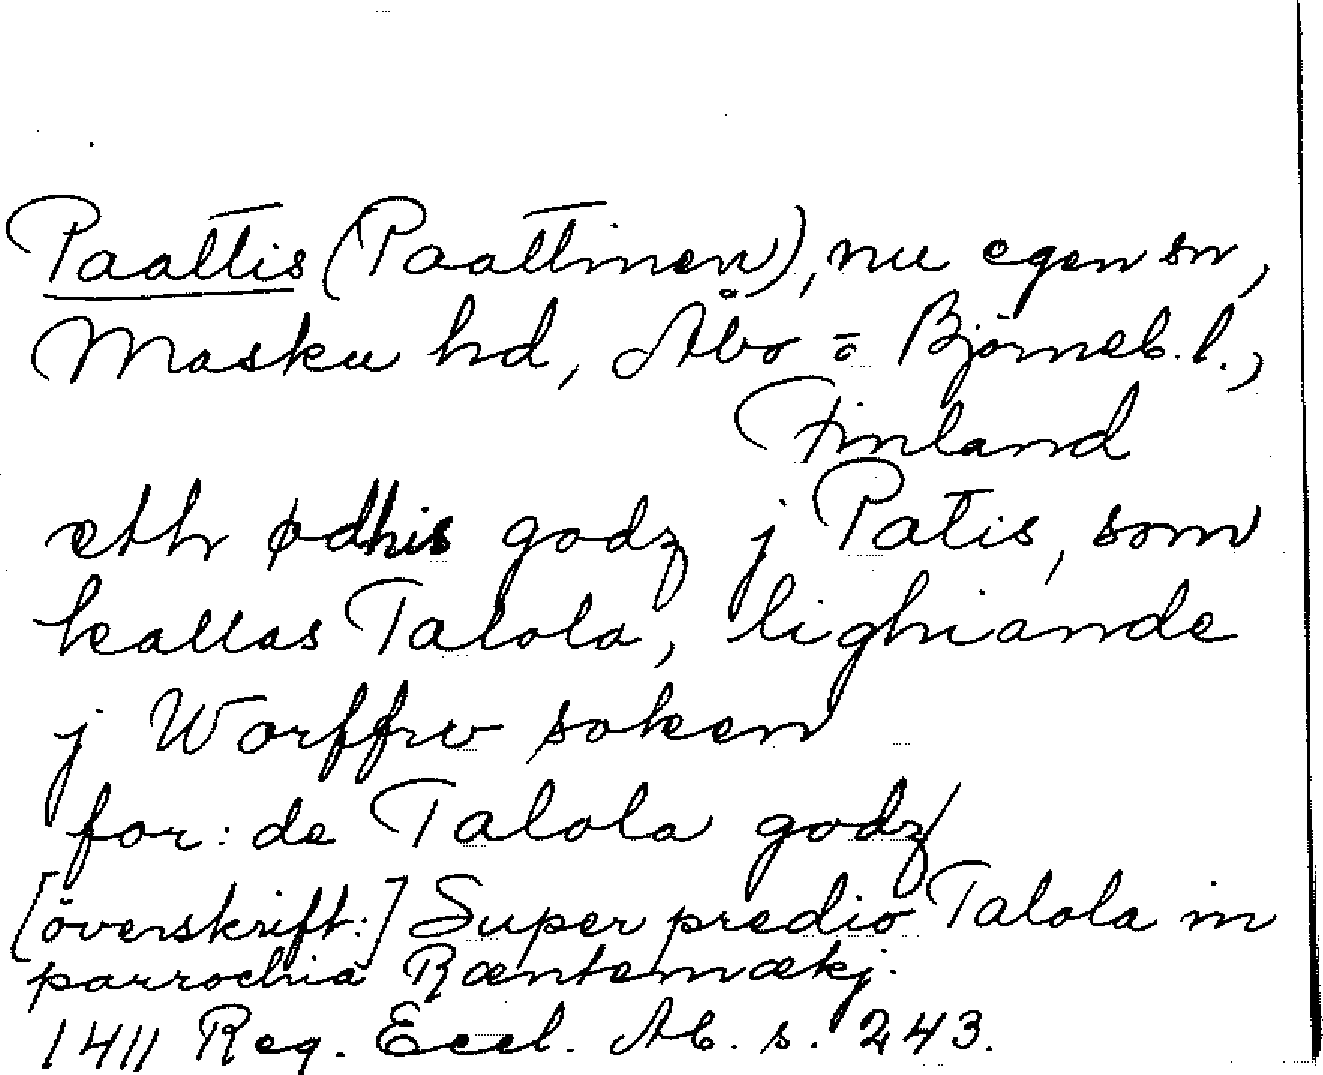 Paattis (Paattinen), nu egen sn,
Masku hd, Åbo = Björneb. l.,
Finland
eth ødhis godz j Patis, som
kallas Talola, lighiande
j Worffrw soken
for: de Talola godz
[överskrift:] Super predio Talola in
parrochia Ræntemækj.
1411 Reg. Eccl. Ab. s. 243.